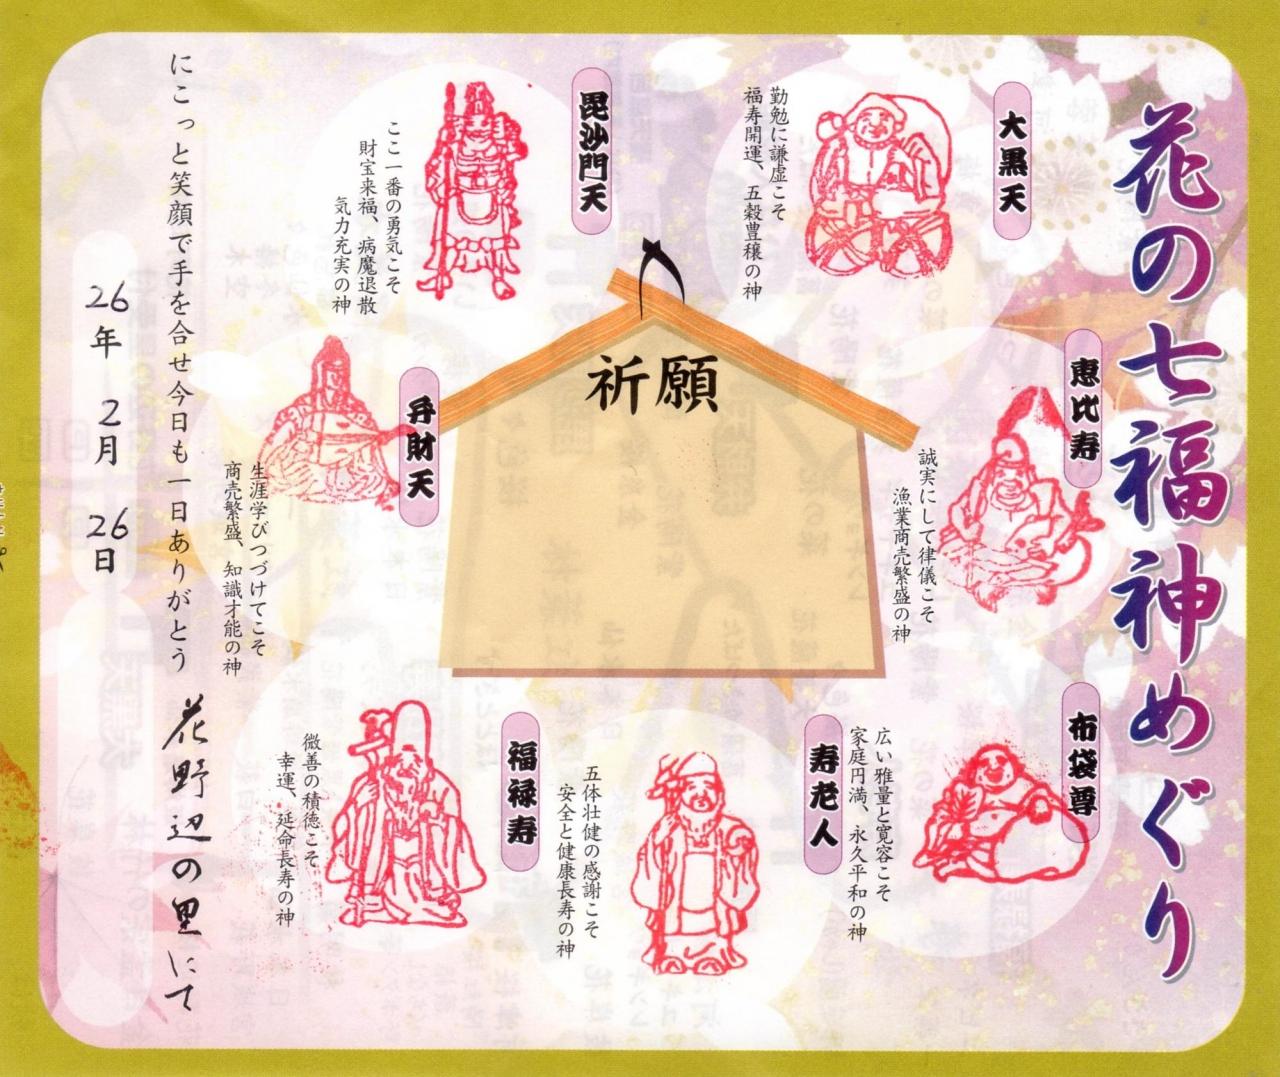 花の七福神めぐり
大黒天
勤勉に謙虚こそ
福寿開運、五穀豊穣の神
毘沙門天
ここ一番の勇気こそ
財宝来福、病魔退散
気力充実の神
恵比寿
誠実にして律儀こそ
漁業商売繁盛の神
祈願
弁財天
生涯学びつづけてこそ
商売繁盛、知識才能の神
布袋尊
広い雅量と寛容こそ
家庭円満、永久平和の神
寿老人
五体壮健の感謝こそ
安全と健康長寿の神
福禄寿
微善の積徳こそ
幸運、延命長寿の神
にこっと笑顔で手を合せ今日も一日ありがとう 花野辺の里にて
26年 2月 26日